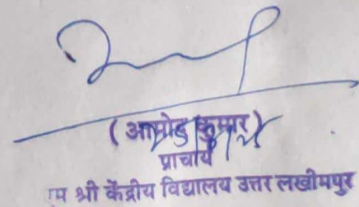 ( आमोद कुमार )
प्राचार्य
म श्री केंद्रीय विद्यालय उत्तर लखीमपुर